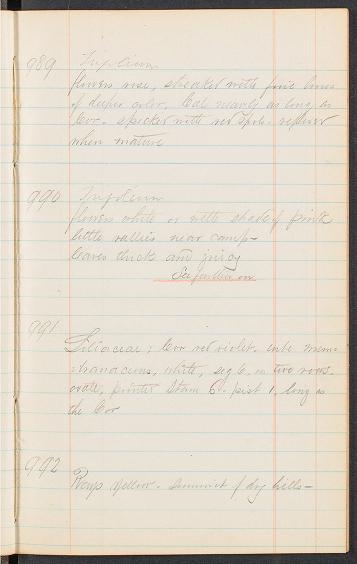 989 Trifolium
flowers rose, streaked with fine lines
of deeper color, Cal nearly as long as
Cor. specked with red spots. reflexer
when mature
990 Trifolium
flowers white or with shade of pink
little vallies near camp-
leaves thick and juicy
See further on
991
Liliaceae; Cor red violet. invol. mem-
branaceous, white, seg 6. in two rows.
ovate, pointed Stam 6. pist 1, long as
the Cor
992
Rays yellow. summit of dry hills-